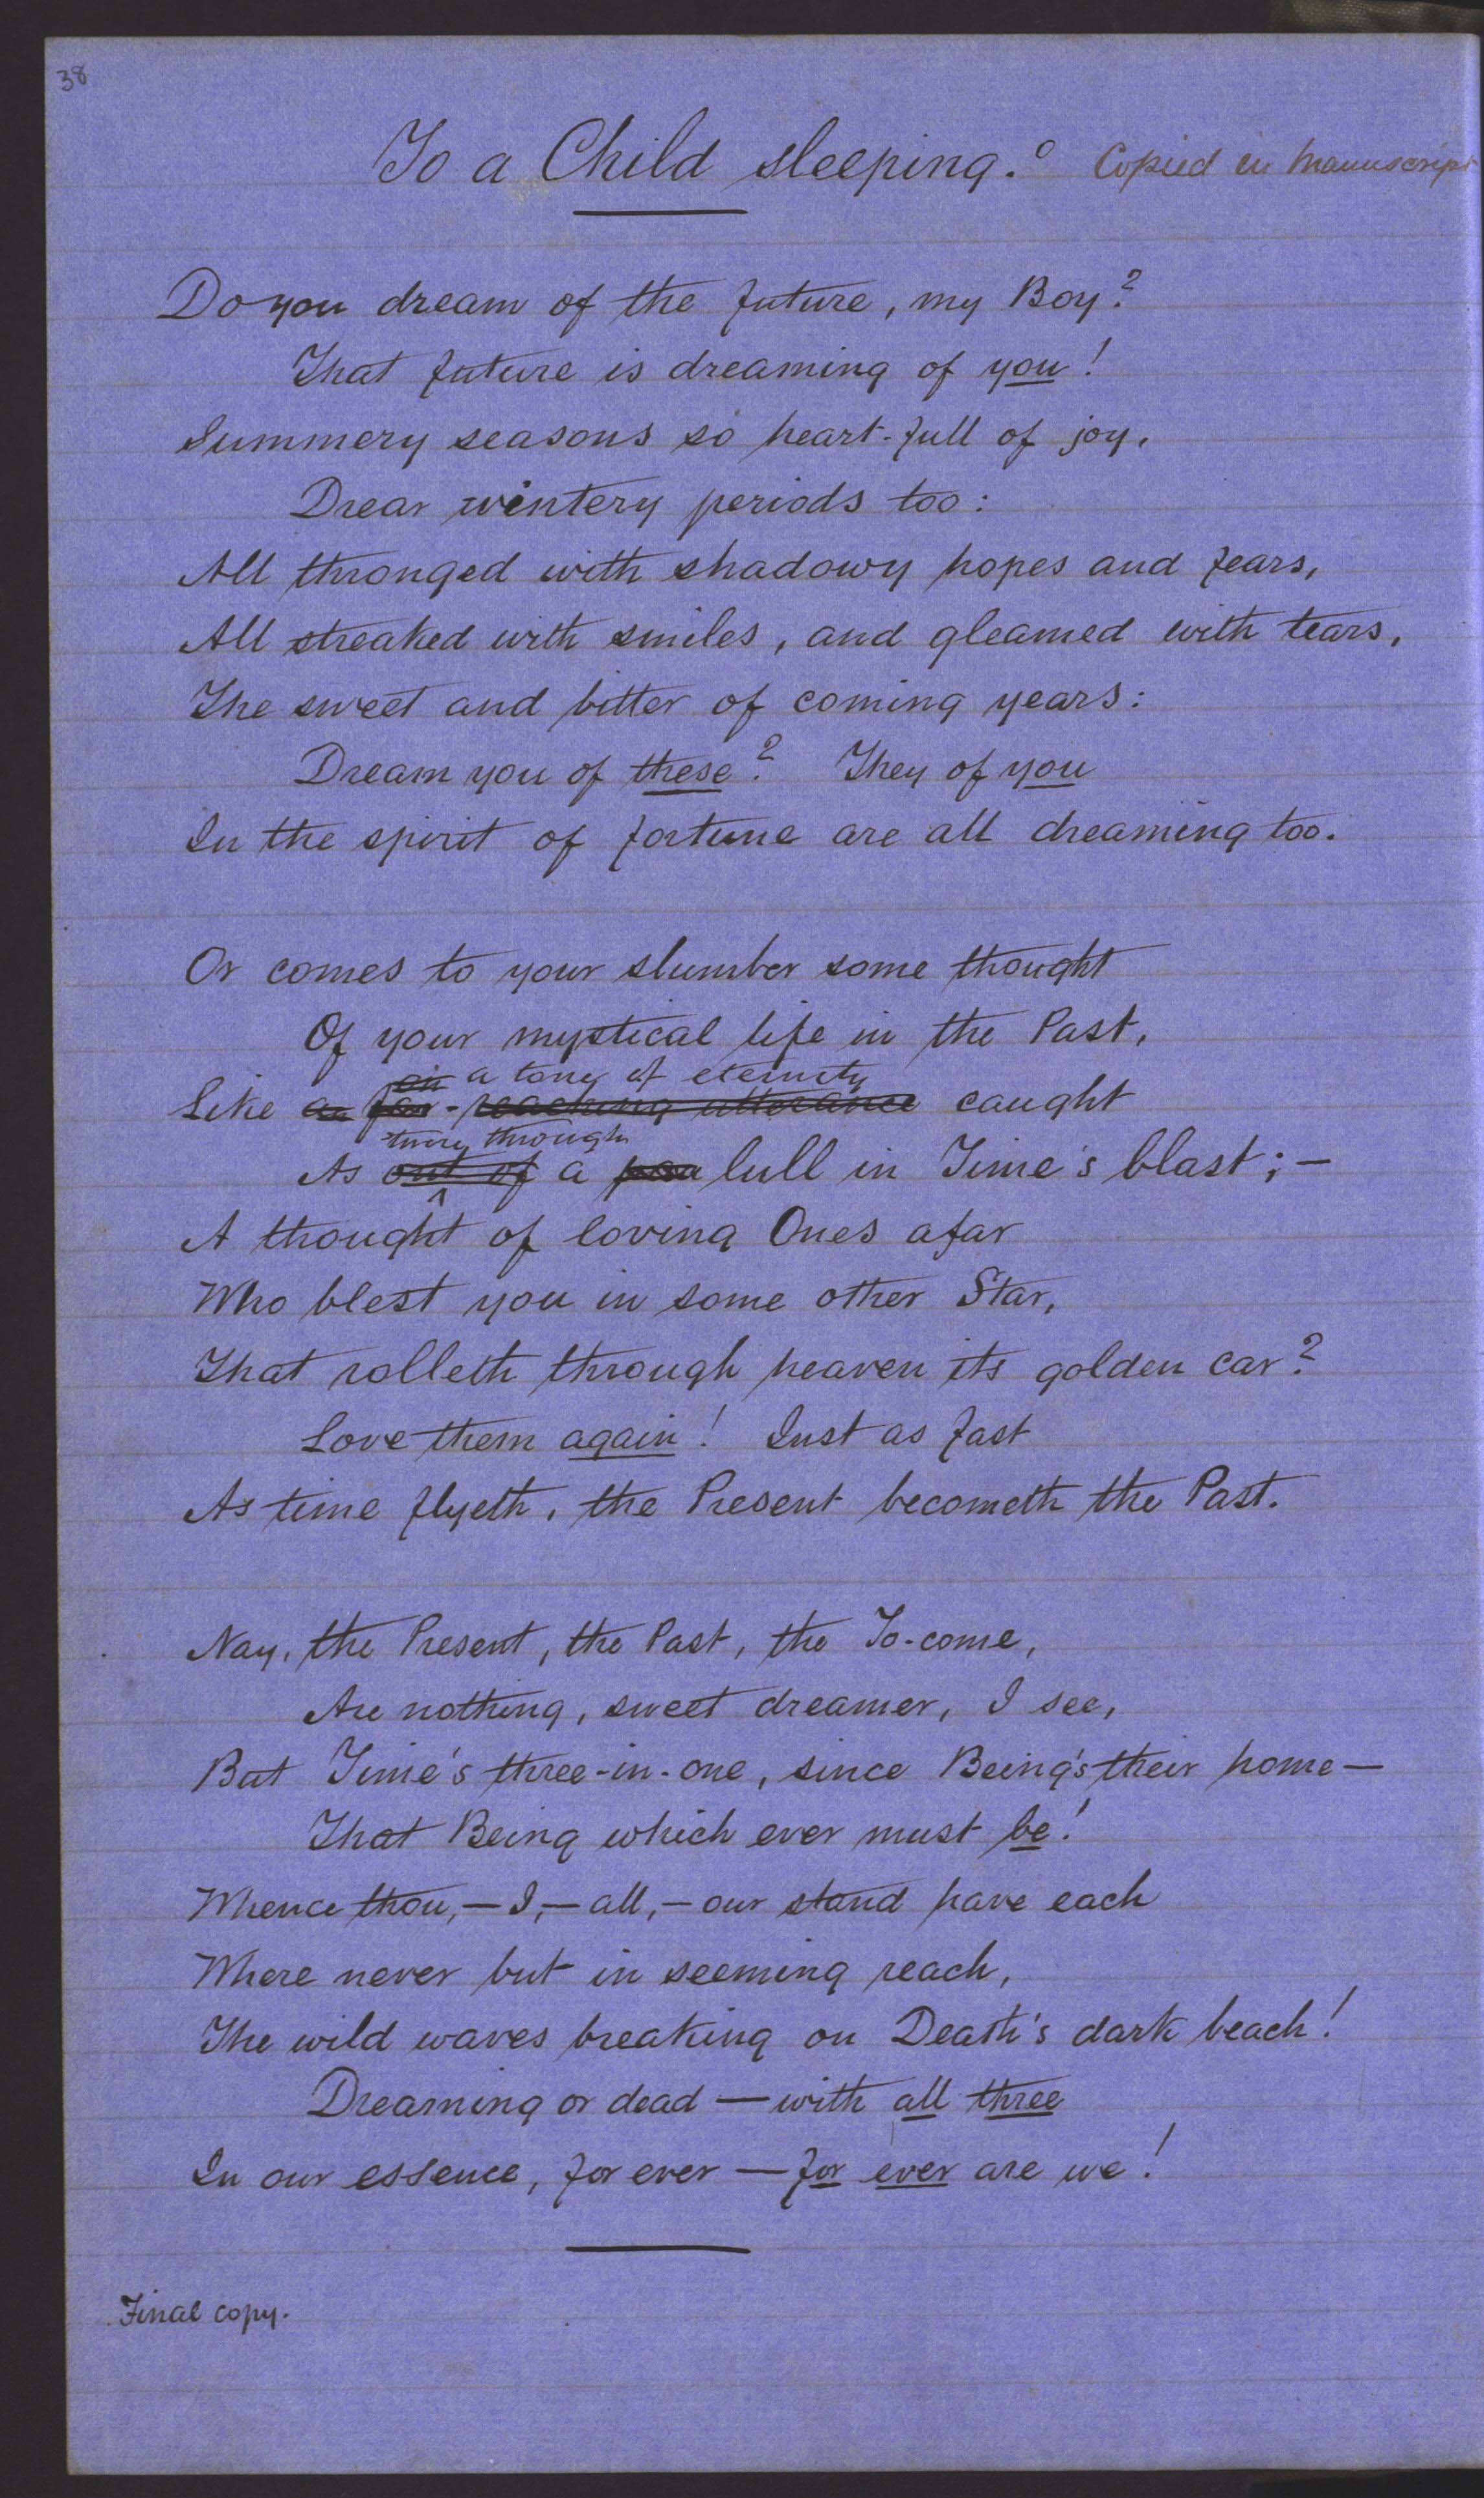 38
To a Child sleeping. Copied in Manuscript
Do you dream of the future, my Boy?
That future is dreaming of you!
Summery seasons so heart-full of joy,
Drear wintery periods too:
All thronged with shadowy hopes and fears,
All streaked with smiles, and gleamed with tears,
The sweet and bitter of coming years:
Dream you of these? They of you
In the spirit of fortune are all dreaming too.
Or comes to your slumber some thought
Of your mystical life in the Past,
a tone of eternity
Like a far-reaching utterance caught
through
As out of a lull in Time's blast; —
A thought of loving Ones afar
Who blest you in some other Star,
That rolleth through heaven its golden car?
Love them again! Just as fast
As time flyeth, the Present becometh the Past.
Nay, the Present, the Past, the To-come,
Are nothing, sweet dreamer, I see,
But Time's three-in-one, since Being's their home —
That Being which ever must be!
Whence thou, — I, — all, — our stand have each
Where never but in seeming reach,
The wild waves breaking on Death's dark beach!
Dreaming or dead — with all three
In our essence, for ever — for ever are we!
Final copy.